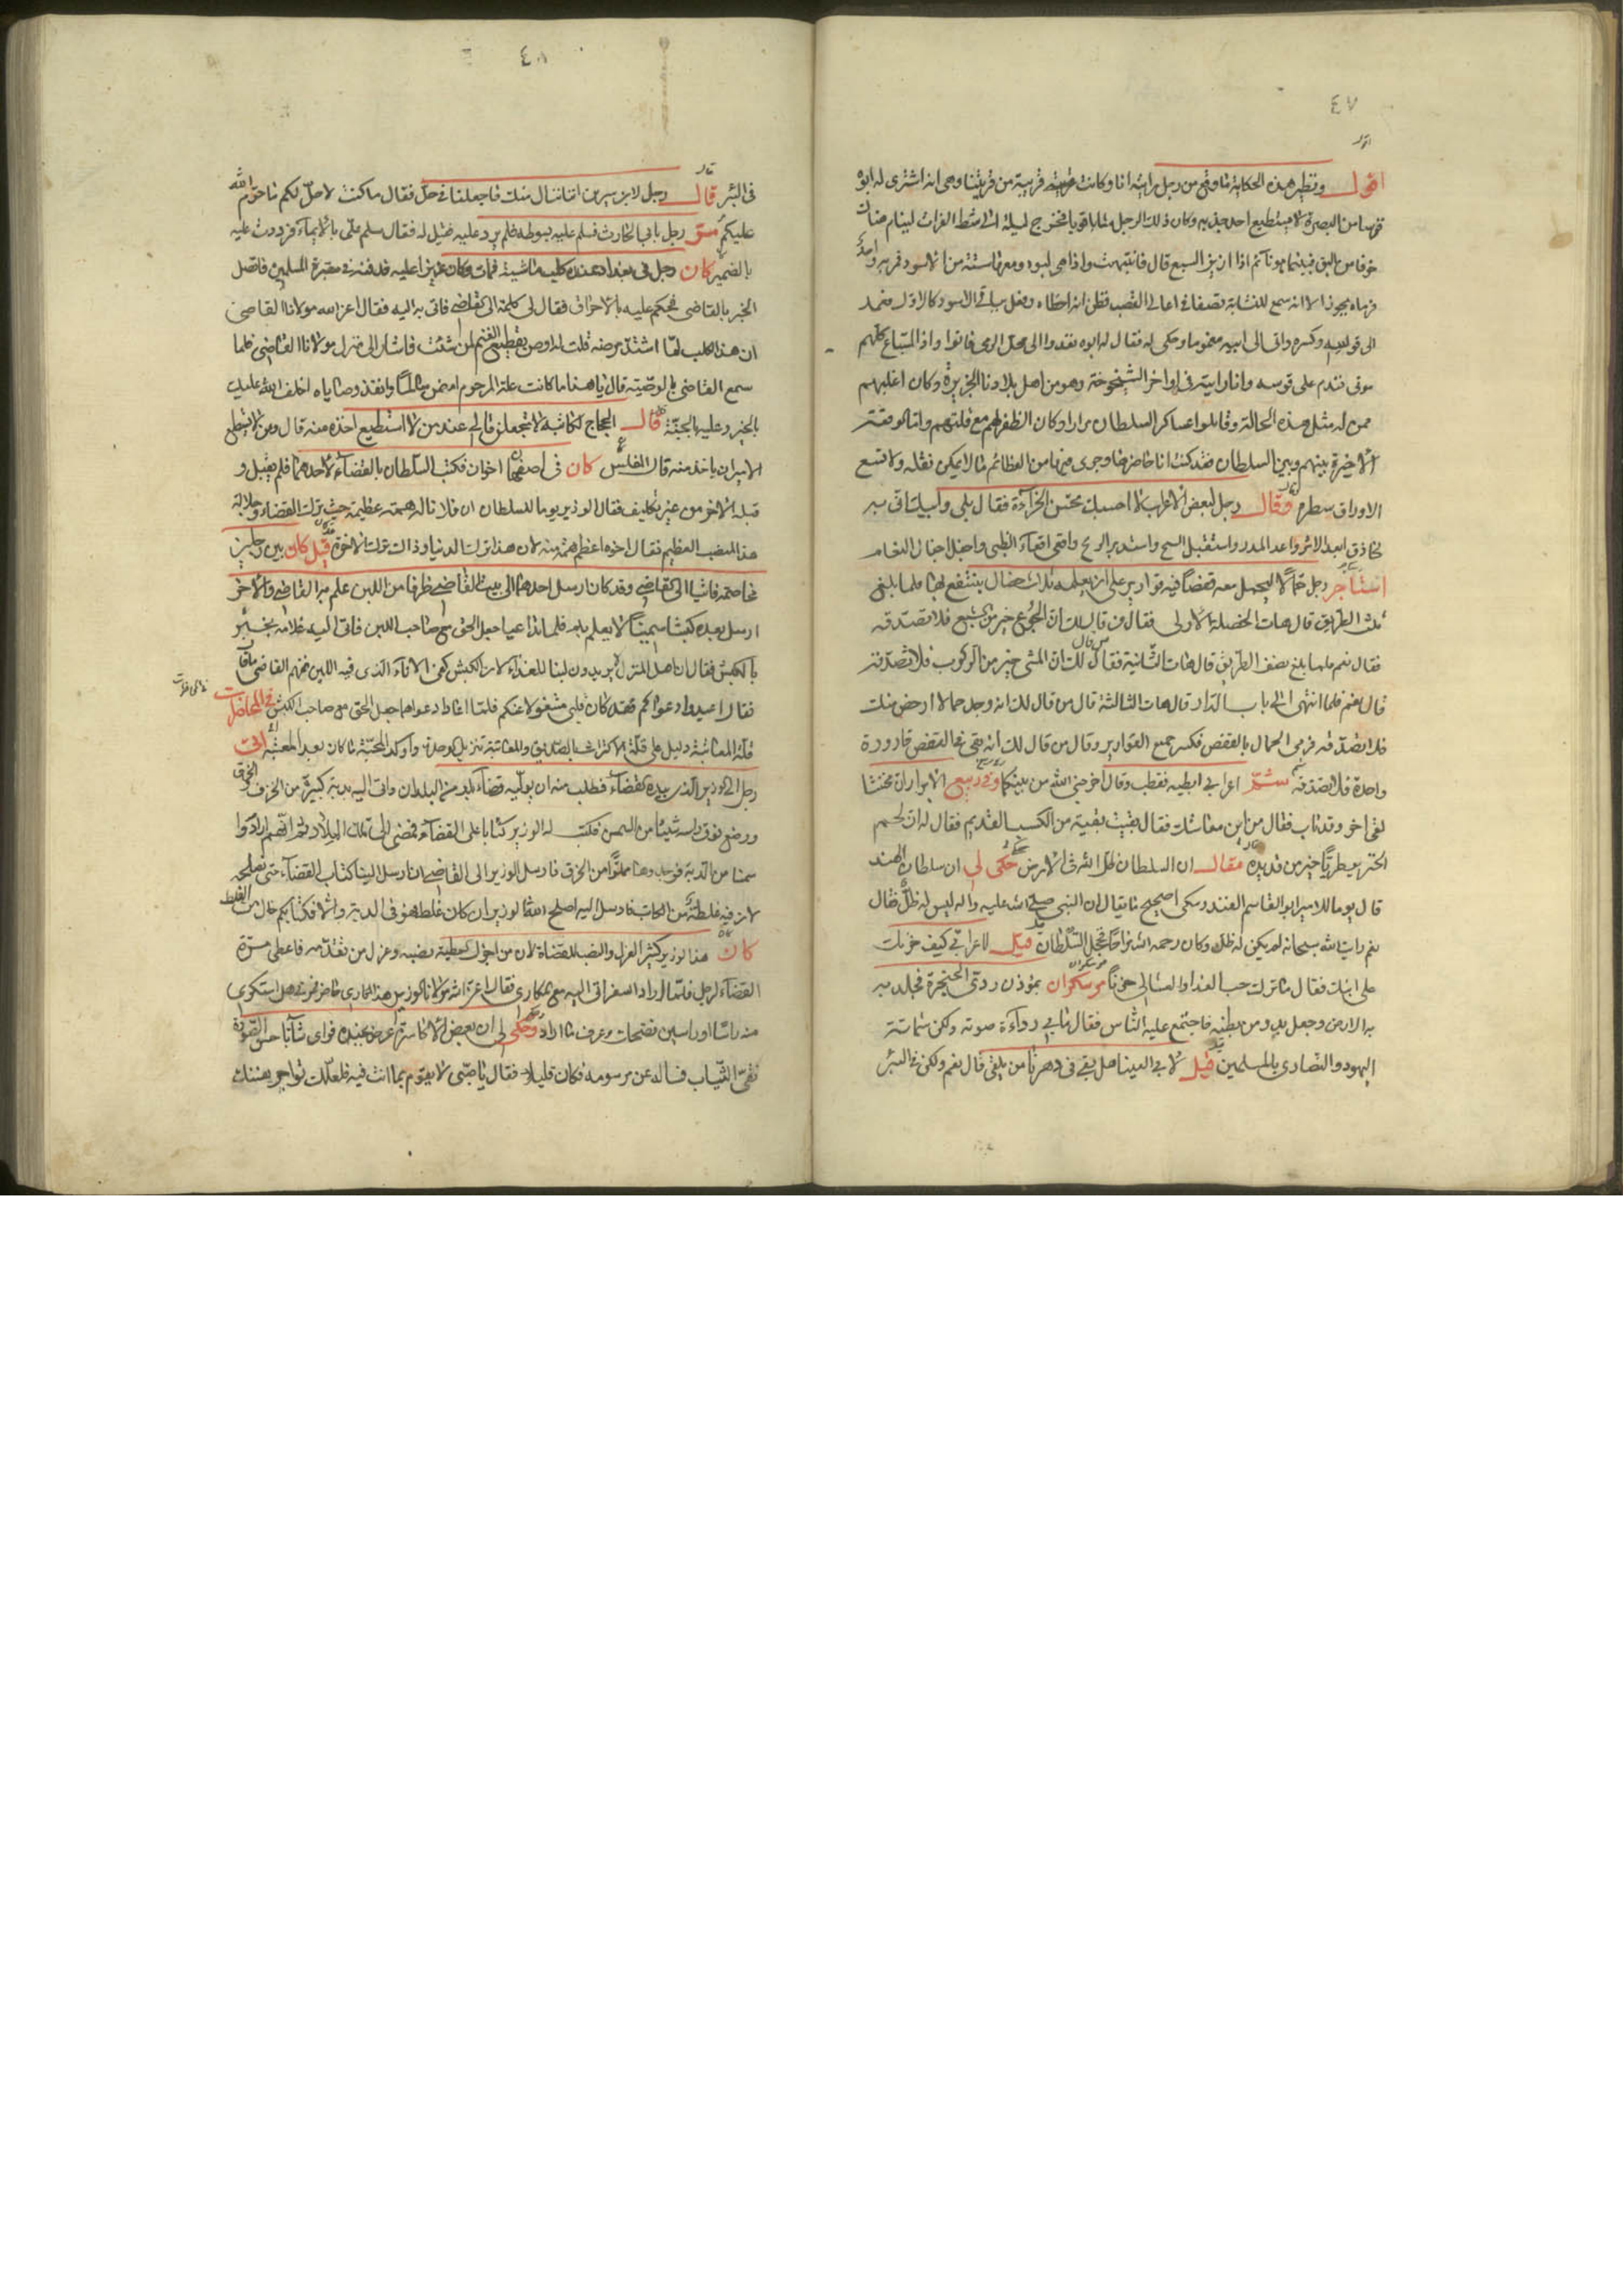 ٤٧
اقول ونظير هذه الحكاية ما وقع من رجل رايته انا وكانت قريته قريبة من قريتنا وهي انه اشترى له ابوه
قوسا من البصرة لا يستطيع احد جذبه وكان ذلك الرجل شابا قويا فخرج ليلة الى شط الفرات لينام هناك
خوفا من البق فبينما هو نائم اذا ازيز السبع قال فانتبهت واذا هي لبوة ومعها ستة من الاسود قريب واحد
فرماه بحيوذ الا انه سمع للنشابة تصفاقا في اعالي القصب فظن انه اخطاه وفعل بباقي الاسود كالاول فعمد
الى قوسه وكسره واتى الى ابيه مغموما وحكى له فقال له ابوه نغدوا الى محل الرمي فاتوا واذا السباع كلهم
موتى فندم على قوسه وانا رايته في اواخر الشيخوخة وهو من اهل بلادنا الجزيرة وكان اغلبهم
ممن له مثل هذه الحالة وقابلوا عساكر السلطان مرارا وكان الظفر لهم مع قلتهم واما الوقعة
الاخيرة بينهم وبين السلطان فقد كنت انا حاضرها وجرى فيها من العظائم ما لا يمكن نقله ولا تسع
الاوراق سطره وقال رجل لبعض الاعراب لا احسبك تحسن الخراءة فقال بلى وابيك اني به
لحاذق ابعد الاثر واعد المدر واستقبل الشيح واستدبر الريح واقعي اقعاء الظبي واجفل اجفال النعام
استاجر رجل حمالا ليحمل معه قفصا فيه قوارير على ان يعلمه ثلاث خصال ينتفع بها فلما بلغ
ثلث الطريق قال هات الخصلة الاولى فقال من قال لك ان الجوع خير من الشبع فلا تصدقه
فقال نعم فلما بلغ نصف الطريق قال هات الثانية فقال من قال لك ان المشي خير من الركوب فلا تصدقه
قال نعم فلما انتهى الى باب الدار قال هات الثالثة قال من قال لك انه وجد حمالا ارخص منك
فلا تصدقه فرمى الحمال بالقفص فكسر جميع القوارير وقال من قال لك انه بقي في القفص قارورة
واحدة فلا تصدقه شم اعرابي ابطيه فقطب وقال اخرجني الله من بينكما وفي ربيع الابرار ان مخنثا
لقي اخر وقد تاب فقال من اين معاشك فقال بقيت بقية من الكسب القديم فقال له ان لحم
الخنزير طريا خير من قديده فقال ان السلطان ظل الله في الارض حكى لي ان سلطان الهند
قال يوما للامير ابو القاسم الفندرسكي اصحيح ما يقال ان النبي صلى الله عليه واله ليس له ظل فقال
نعم رايت الله سبحانه لم يكن له ظل وكان رحمه الله مزاحا فخجل السلطان قيل لاعرابي كيف حزنك
على ابنك فقال ما ترك حب الغداء والعشاء لي حزنا مر سكران بمؤذن ردي الحنجرة فجلد به
به الارض وجعل يدوس بطنه فاجتمع عليه الناس فقال ما بي رداءة صوته ولكن شماتة
اليهود والنصارى بالمسلمين قيل لابي العينا هل بقي في دهرنا من يلقى قال نعم ولكن في البئر
٤٨
في البئر قال رجل لابن سيرين اننا ننال منك فاجعلنا في حل فقال ما كنت لاحل لكم ما حرم الله
عليكم مر رجل بابي الحارث فسلم عليه بسوطه فلم يرد عليه فقيل له فقال سلم علي بالايماء فرددت عليه
بالضمير كان رجل في بغداد عنده كلب ماشية فمات وكان عزيزا عليه فدفنه في مقبرة المسلمين فاتصل
الخبر بالقاضي فحكم عليه بالاحراق فقال لي كلمة الى القاضي فاتي به اليه فقال اعز الله مولانا القاضي
ان هذا الكلب لما اشتد مرضه قلت له اوص بقطيع الغنم لمن شئت فاشار الى منزل مولانا القاضي فلما
سمع القاضي بالوصية قال يا هذا ما كانت علة المرحوم امض سالما وانفذ وصاياه اخلف الله عليك
بالخير وعليه بالجنة قال الحجاج لكاتبه لا تجعلن مالي عند من لا استطيع اخذه منه قال ومن لا يستطيع
الامير ان ياخذ منه قال المفلس كان في اصفهان اخوان فكتب السلطان بالقضاء لاحدهما فلم يقبل و
قبله الاخر من غير تكليف فقال الوزير يوما للسلطان ان فلانا له همة عظيمة حيث ترك القضاء وجلالة
هذا المنصب العظيم فقال اخوه اعظم همة منه لان هذا ترك الدنيا وذاك ترك الاخرة قيل كان بين رجلين
مخاصمة فاتيا الى القاضي وقد كان ارسل احدهما الى بيت القاضي ظرفا من اللبن علم به القاضي والاخر
ارسل بعده كبشا سمينا لا يعلم به فلما تداعيا جعل الحق مع صاحب اللبن فاتى اليه غلامه يخبره
بالكبش فقال ان اهل المنزل يريدون لبنا للغذاء لان الكبش كفى الاناء الذي فيه اللبن ففهم القاضي ما قال
فقال اعيدوا دعواكم فقد كان قلبي مشغولا عنكم فلما اعادا دعواهما جعل الحق مع صاحب الكبش في المحاضرات
قلة المعاتبة دليل على قلة الاكتراث بالصديق والمعاتبة تزيل الموجدة واوكد المحبة ما كان بعد المعتبة اتى
رجل الى الوزير الذي بيده القضاء فطلب منه ان يوليه قضاء بلد من البلدان واتى اليه بدبة كبيرة من الخزف
ووضع فوق راسه شيئا من السمن فكتب له الوزير كتابا على القضاء فمضى الى تلك البلاد ثم انهم ارادوا
سمنا من الدبة فوجدوها مملوا من الخرق فارسل الوزير الى القاضي انا رسل الينا كتاب القضاء حتى نصلحه
لان فيه غلطة من الكاتب فارسل اليه اصلح الله الوزير ان كان غلط فهو في الدبة والا فكتابكم خال من الغلط
كان هذا الوزير كثير العزل والنصب للقضاة لان من اجزل العطية نصبه وعزل من تقدمه فاعطى مرة
القضاء لرجل فلما اراد السفر اتى اليه مع المكاري فقال اعز الله مولانا الوزير هذا المكاري حاضر
وحكى لي ان بعض الاكاسرة عرض جنده فراى شابا حسن الصورة
نقي الثياب فساله عن مرسومه فكان قليلا فقال يا صبي لا يقوم بما انت فيه فلعلك تواجر بنفسك